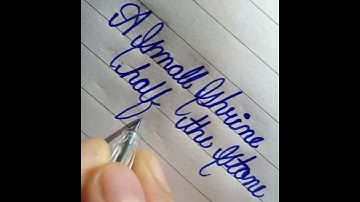 A Small Shrine
(half (the stone